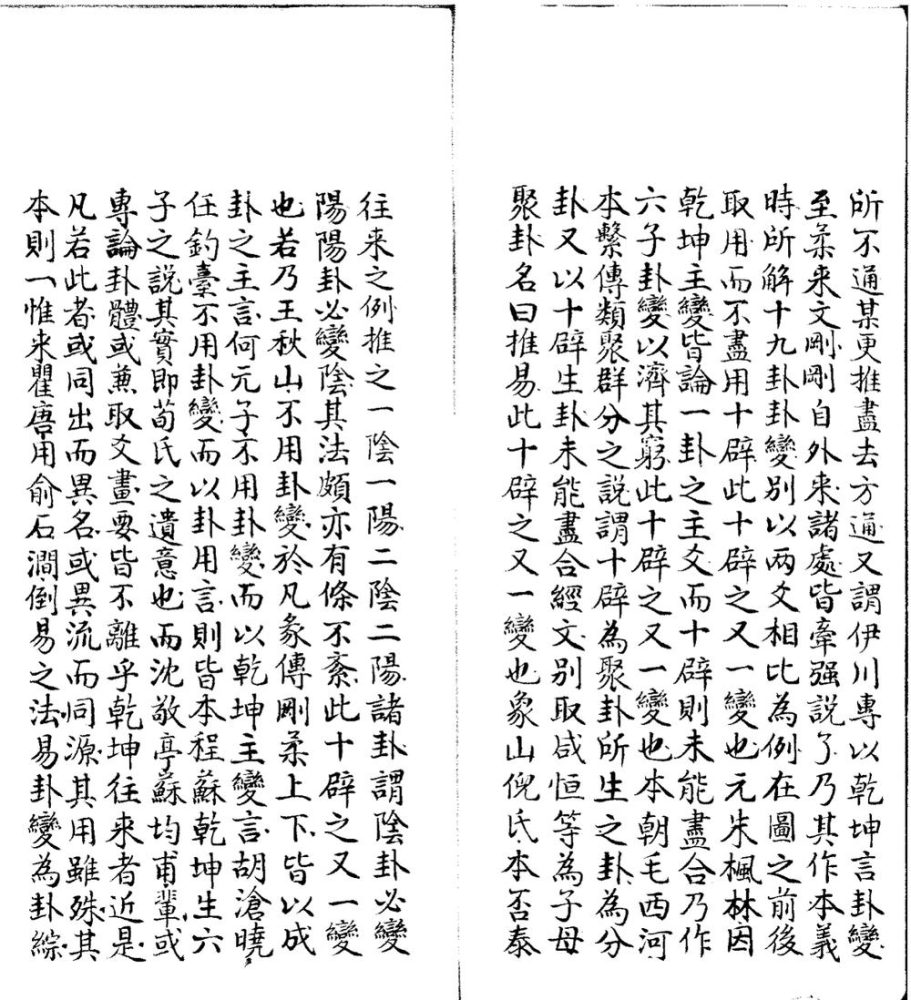 所不通某更推盡去方通又謂伊川專以乾坤言卦變
至柔来文剛剛自外来諸處皆牽强説了乃其作本義
時所解十九卦卦變别以兩爻相比為例在圖之前後
取用而不盡用十辟此十辟之又一變也元朱楓林因
乾坤主變皆論一卦之主爻而十辟則未能盡合乃作
六子卦變以濟其窮此十辟之又一變也本朝毛西河
本繫傳類聚群分之説謂十辟為聚卦所生之卦為分
卦又以十辟生卦未能盡合經文别取咸恒等為子母
聚卦名曰推易此十辟之又一變也象山倪氏本否泰
往来之例推之一陰一陽二陰二陽諸卦謂陰卦必變
陽陽卦必變陰其法頗亦有條不紊此十辟之又一變
也若乃王秋山不用卦變於凡彖傳剛柔上下皆以成
卦之主言何元子不用卦變而以乾坤主變言胡滄曉
任釣臺不用卦變而以卦用言則皆本程蘇乾坤生六
子之説其實即荀氏之遺意也而沈敬亭蘇均甫輩或
專論卦體或兼取爻畫要皆不離乎乾坤往来者近是
凡若此者或同出而異名或異流而同源其用雖殊其
本則一惟来瞿唐用俞石澗倒易之法易卦變為卦綜